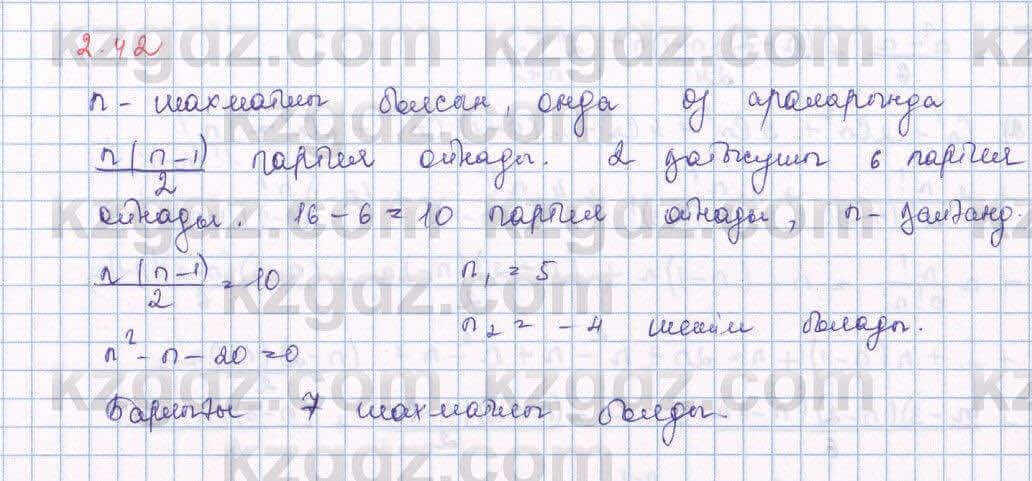 2.42
n - шахматшы болсын, онда өз араларында
n(n-1)/2 партия ойнады. 2 даткуші 6 партия
ойнады. 16 - 6 = 10 партия ойнады, n - қалғанд.
n(n-1)/2 = 10 n₁ = 5
n₂ = -4 шешім болады.
n² - n - 20 = 0
Барлығы 7 шахматшы болды.